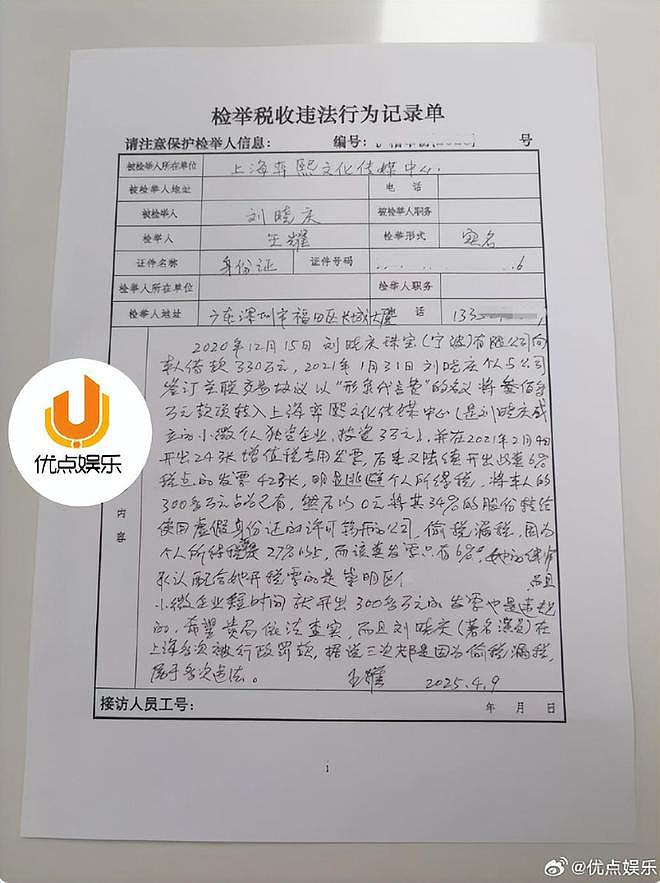 检举税收违法行为记录单
请注意保护检举人信息: 编号: 号
被检举人所在单位 上海弈熙文化传媒中心.
被检举人地址 电 话
被检举人 刘晓庆 被检举人职务
检举人 王耀 检举形式 实名
证件名称 身份证 证件号码 6
检举人所在单位 检举人职务
检举人地址 广东深圳市福田区长城大厦 话 133
2020年12月15日刘晓庆珠宝(宁波)有限公司向
本人借款330万元,2021年1月31日刘晓庆个人与公司
签订关联交易协议以“形象代言费”的名义将叁佰多
万元款项转入上海弈熙文化传媒中心(是刘晓庆成
立的小微个人独资企业,投资3万元),并在2021年2月4日
开出24张增值税专用发票,后来又陆续开出此类6%
税点的发票42张,明显逃避个人所得税,将本人的
300多万元占为己有,然后以0元将其34%的股份转给
使用虚假身份证的许可转开的公司,偷税漏税,因为
个人所得税是27%以上,而该类发票只有6%,她的律师
承认配给她开税票的是崇明区 而且
小微企业短时间就开出300多万元的发票也是违规
的,希望贵局依法查实,而且刘晓庆(著名演员)在
上海多次被行政罚款,据说三次都是因为偷税漏税,
属于多次违法。 王耀 2025.4.9
内容
接访人员工号: 年 月 日
1
优点娱乐
@优点娱乐